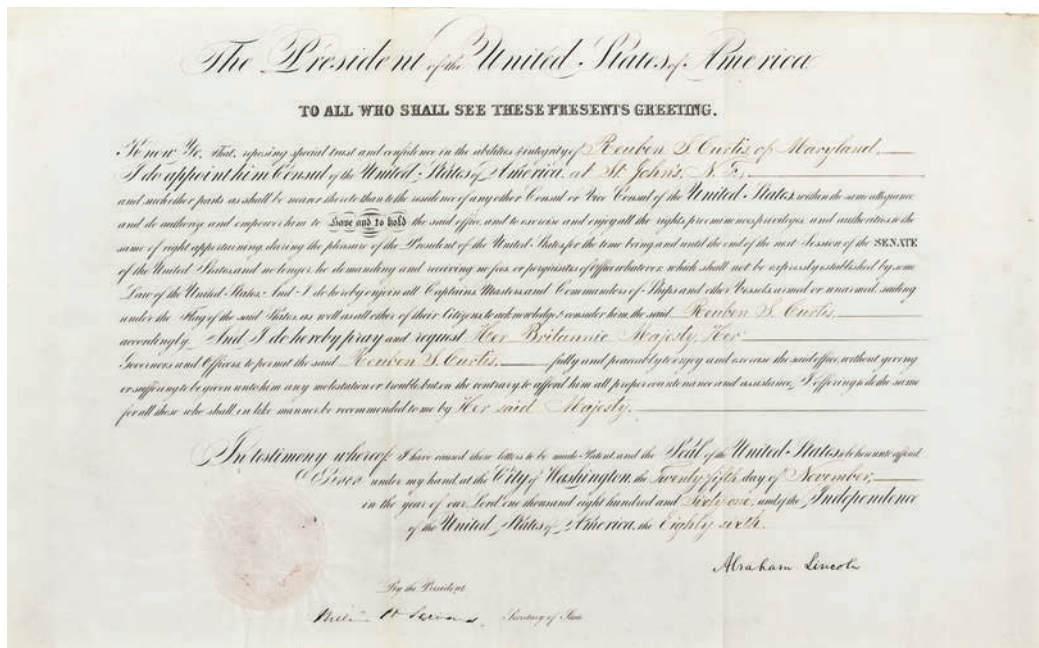 The President of the United States of America
TO ALL WHO SHALL SEE THESE PRESENTS GREETING.
Know Ye, That, reposing special trust and confidence in the abilities & integrity of Reuben S. Curtis of Maryland,
I do appoint him Consul of the United States of America, at St. Johns, N. F.,
and such other parts as shall be nearer thereto than to the residence of any other Consul or Vice Consul of the United States, within the same allegiance
and do authorize and empower him to Have and to hold the said office, and to exercise and enjoy all the rights, preeminences, privileges, and authorities, to the
same of right appertaining, during the pleasure of the President of the United States, for the time being, and until the end of the next Session of the SENATE
of the United States, and no longer, he demanding and receiving no fees or perquisites of Office whatever, which shall not be expressly established by some
Law of the United States. And I do hereby enjoin all Captains, Masters, and Commanders of Ships and other Vessels, armed or unarmed, sailing
under the Flag of the said States, as well as all other of their Citizens, to acknowledge & consider him the said Reuben S. Curtis,
accordingly. And I do hereby pray and request Her Britannic Majesty, Her
Governors and Officers, to permit the said Reuben S. Curtis, fully and peaceably to enjoy and exercise the said office, without giving
or suffering to be given unto him any molestation or trouble, but on the contrary to afford him all proper countenance and assistance, I offering to do the same
for all those who shall, in like manner, be recommended to me by Her said Majesty.
In testimony whereof, I have caused these letters to be made Patent, and the Seal of the United States to be hereunto affixed
Given under my hand, at the City of Washington, the Twenty fifth day of November,
in the year of our Lord one thousand eight hundred and Sixty one, and of the Independence
of the United States of America, the Eighty sixth.
Abraham Lincoln
By the President
William H. Seward, Secretary of State